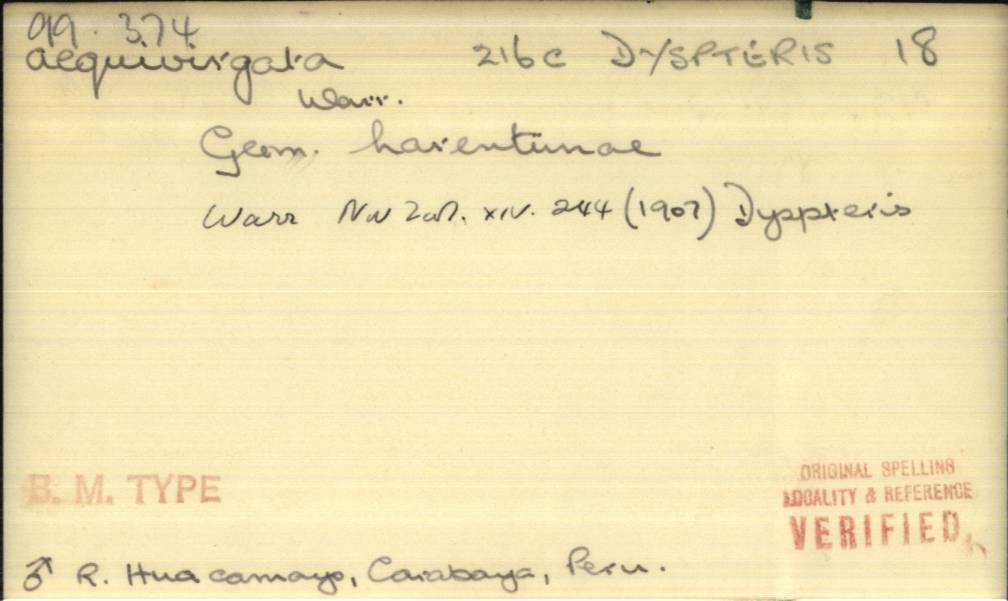 99. 374
aequivirgata 216c DYSPTERIS 18
Warr.
Geom. harentinae
Warr Nov Zool. xiv. 244 (1907) Dyspteris
B. M. TYPE
ORIGINAL SPELLING
LOCALITY & REFERENCE
VERIFIED
♂ R. Huacamayo, Carabaya, Peru.